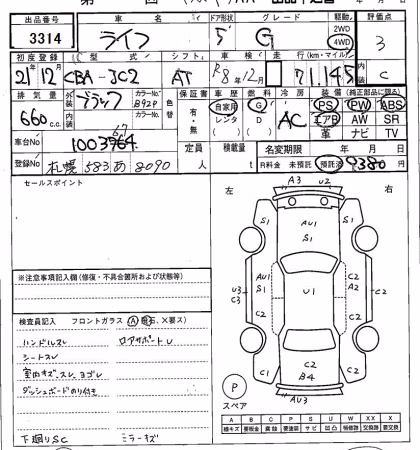 出品番号 車名 ドア形状 グレード 駆動 評価点
3314 ライフ 5 G 2WD 4WD 3
初度登録 型式 シフト 車検 走行(km・マイル) 内装
21年12月 CBA-JC2 AT R8年12月 71,145 C
排気量 外装 カラーNo. 色替 保証書 車歴 燃料 冷房 装備(純正部品に限る)
660c.c. ブラック B92P 有・無 自家用 レンタ G D AC PS PW ABS
内装 カラーNo. エアB AW SR
革 ナビ TV
車台No 1003964 定員 人 積載量 t 名変期限 年 月 日
登録No 札幌 583 あ 8090 R料金 未預託 預託済 9380円
セールスポイント
左 右
A3 U2
S1 AU1 S1 S1
U3 C3 AU1 S1 U1 C2 A2 C2
C2 C2
C1 C2 B4 C2
AU3
P
スペア
※注意事項記入欄(修復・不具合箇所および状態等)
検査員記入 フロントガラス(A、飛石、X要ス)
ハンドルスレ ロアサポートU
シートスレ
室内キズ、スレ、ヨゴレ
ダッシュボードのり付き
下廻りSC ミラーキズ
A B C P S U W XX X
線キズ 要板金 腐蝕 要塗装 サビ 凹凸 補修跡 交換跡 要交換